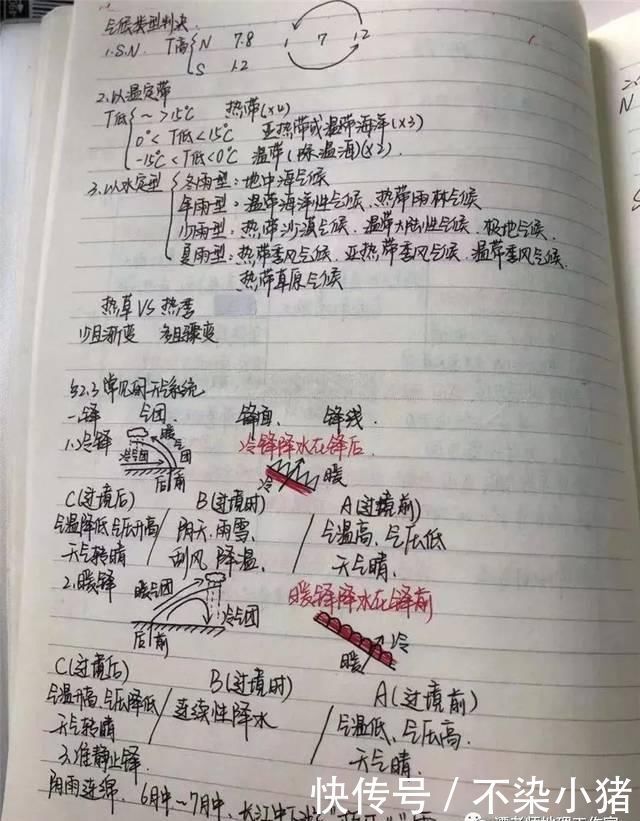 气候类型判决.
1.S.N. T高 N 7.8 1 7 12
S 1.2
2.以温定带
T低 ~ >15℃ 热带(×4)
0°< T低<15℃ 亚热带或温带海洋(×3)
-15℃<T低<0℃ 温带(除温海)(×3).
3.以水定型 冬雨型:地中海气候
年雨型:温带海洋性气候、热带雨林气候
少雨型:热带沙漠气候、温带大陆性气候、极地气候、
夏雨型:热带季风气候、亚热带季风气候、温带季风气候、
热带草原气候
热草VS热季
少且渐变 多且骤变
§2.3常见的天气系统
一锋 气团. 锋面. 锋线.
1.冷锋 冷气团 暖气团 后 前
冷锋降水在锋后
冷 暖
C(过境后) B(过境时) A(过境前)
气温降低气压升高 阴天、雨雪、 气温高、气压低
天气转晴 刮风 降温、 天气晴.
2.暖锋 暖气团 冷气团 后 前
暖锋降水在锋前
暖 冷
C(过境后) B(过境时) A(过境前)
气温升高、气压降低 连续性降水 气温低、气压高.
天气转晴 天气晴.
3.准静止锋.
阴雨连绵、6月中~7月中、长江中下游
快传号 / 不染小猪